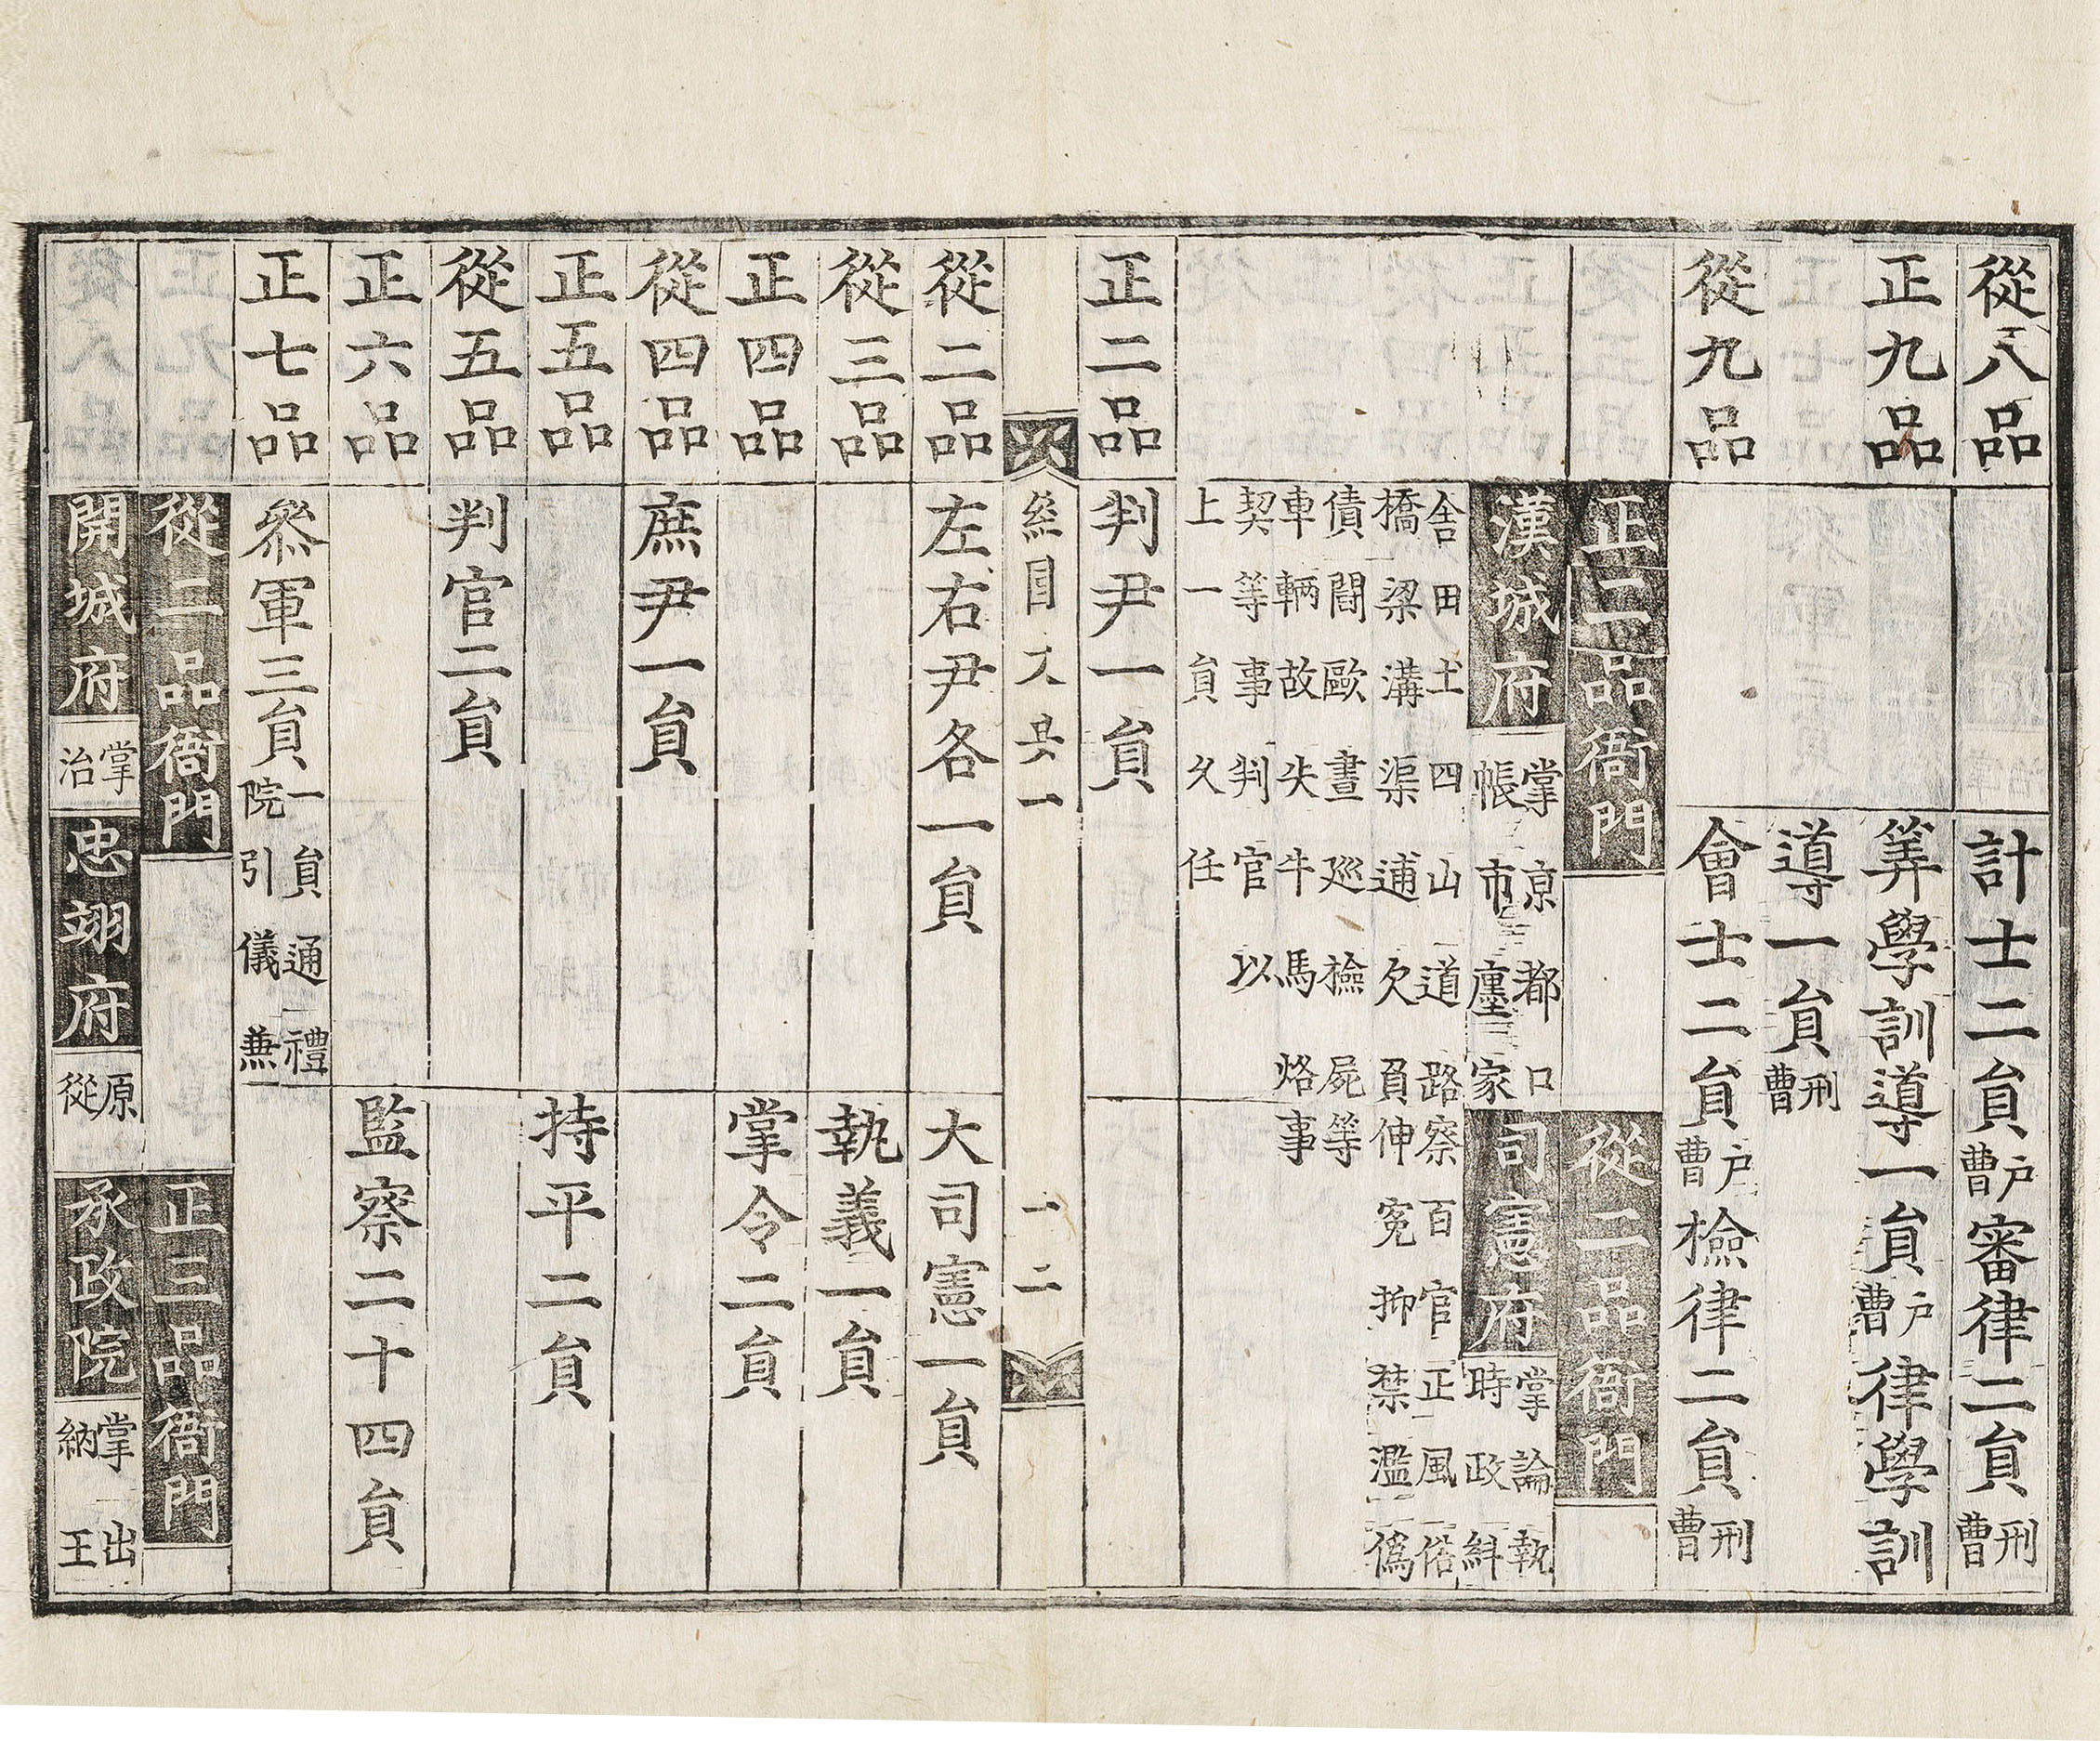 從八品 計士二貟戶曹審律二貟刑曹
正九品 筭學訓導一貟戶曹律學訓
導一貟刑曹
從九品 會士二貟戶曹檢律二貟刑曹
正二品衙門 從二品衙門
漢城府 掌京都口
帳市廛家
司憲府 掌論執
時政糾
舍田土四山道路
橋梁溝渠逋欠負
債鬪歐晝巡檢屍
車輛故失牛馬烙
契等事判官以
上一貟久任
察百官正風俗
伸寃抑禁濫僞
等
事
正二品 判尹一貟
一 一二
從二品 左右尹各一貟 大司憲一貟
從三品 執義一貟
正四品 掌令二貟
從四品 庶尹一貟
正五品 持平二貟
從五品 判官二貟
正六品 監察二十四貟
正七品 參軍三貟一貟通禮
院引儀兼
從二品衙門 正三品衙門
開城府 掌
治
忠翊府 原
從
承政院 掌出
納王